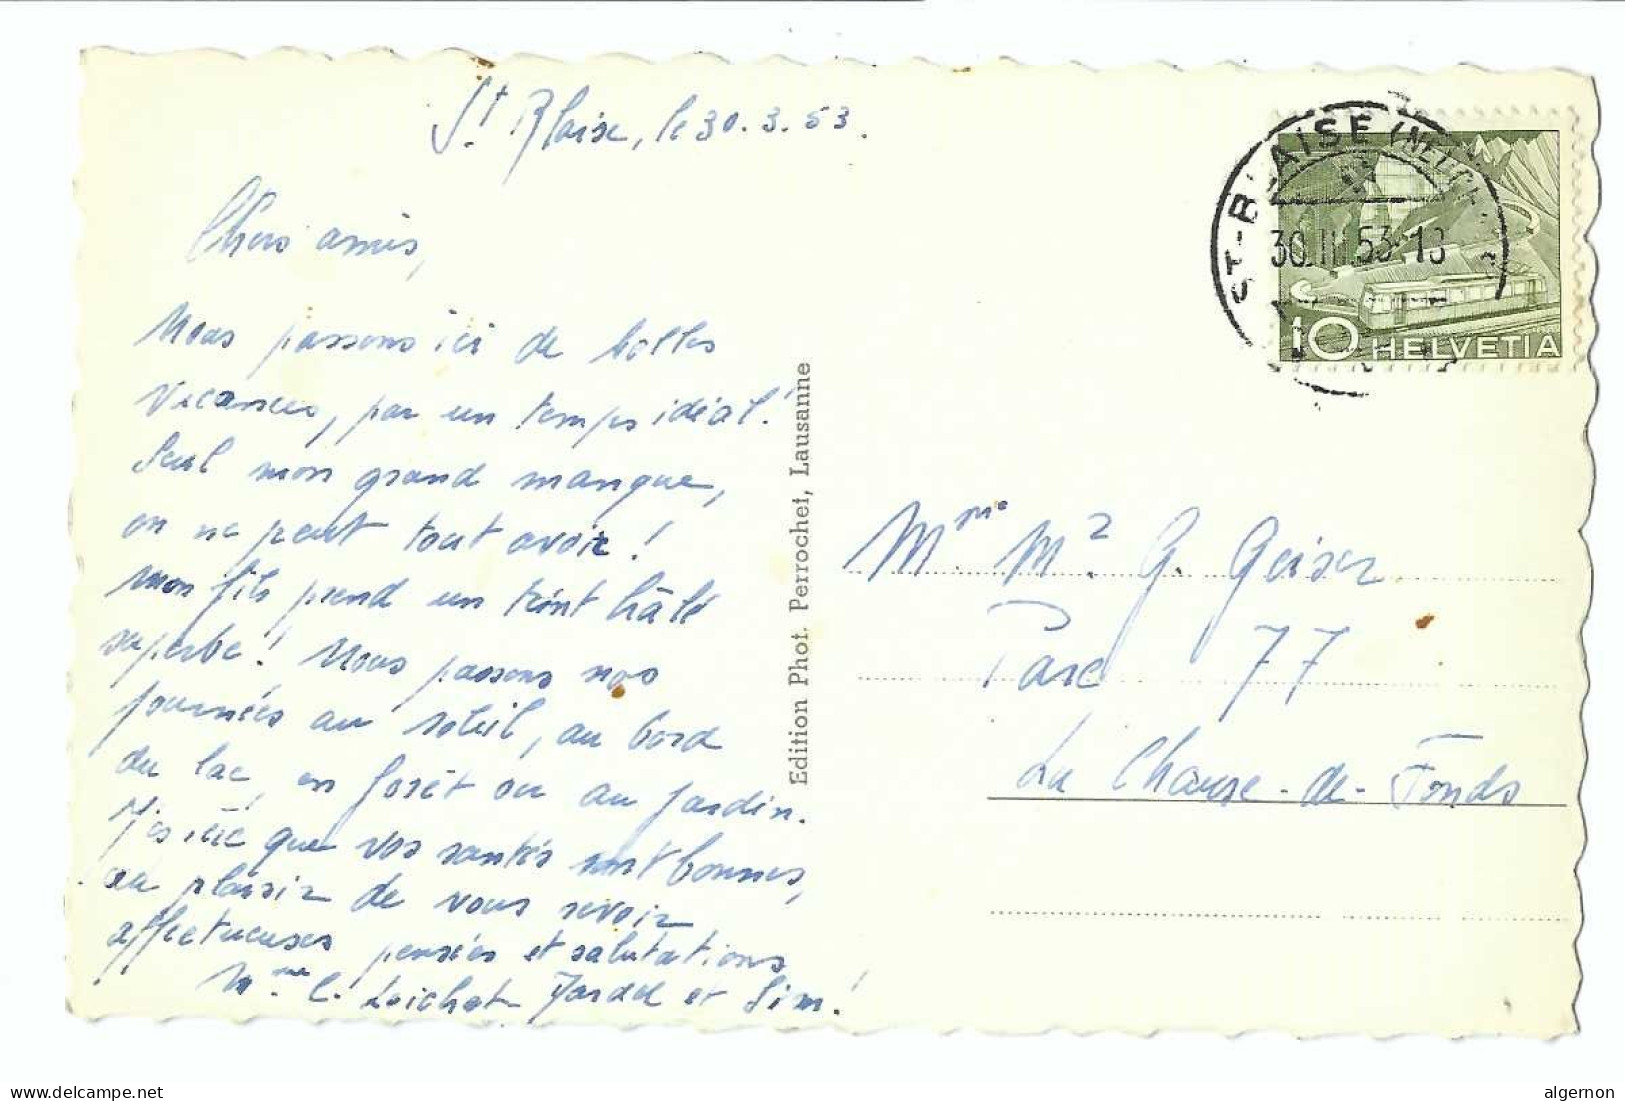 St Blaise, le 30.3.53.
Chers amis,
Nous passons ici de belles
vacances, par un temps idéal!
Seul mon grand manque,
on ne peut tout avoir!
mon fils prend un teint hâlé
superbe! Nous passons nos
journées au soleil, au bord
du lac, en forêt ou au jardin.
J'espère que vos santés sont bonnes,
au plaisir de vous revoir
affectueuses pensées et salutations
Mme C. Leichot et Sim!
Edition Phot. Perrochet, Lausanne
ST-BLAISE (NEUCH
30.III.53-18
10 HELVETIA
Mme Mr G. Geiser
Parc 77
La Chaux-de-Fonds
www.delcampe.net
algernon